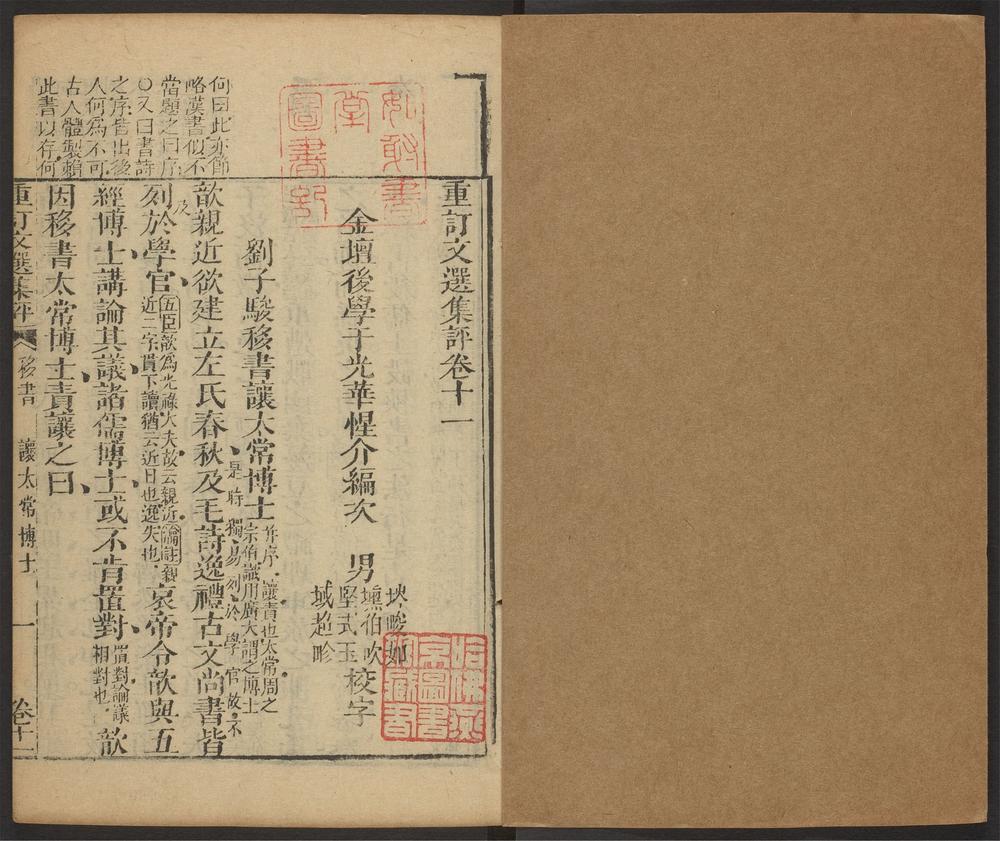 重訂文選集評卷十一
金壇後學于光華惺介編次　男
域趙畛
校字
劉子駿移書讓太常博士
并序讓責也太常周之
宗伯議用廣大謂之博士
是時獨易列於學官故不
歆親近欲建立左氏春秋及毛詩逸禮古文尚書皆
及
列於學官
五臣歆為光祿大夫故云親近瀹註親
近二字貫下讀猶云近日也逸失也
哀帝令歆與五
經博士講論其議諸儒博士或不肯置對
置對論議
相對也
歆
因移書太常博士責讓之曰
何曰此亦節
略漢書似不
當題之曰序
○又曰書詩
之序皆出後
人何為不可
古人體製賴
此書以存何
重訂文選集評
移書
讓太常博士
一
卷十一
書
堂
圖書
哈佛燕
京圖書
館藏書